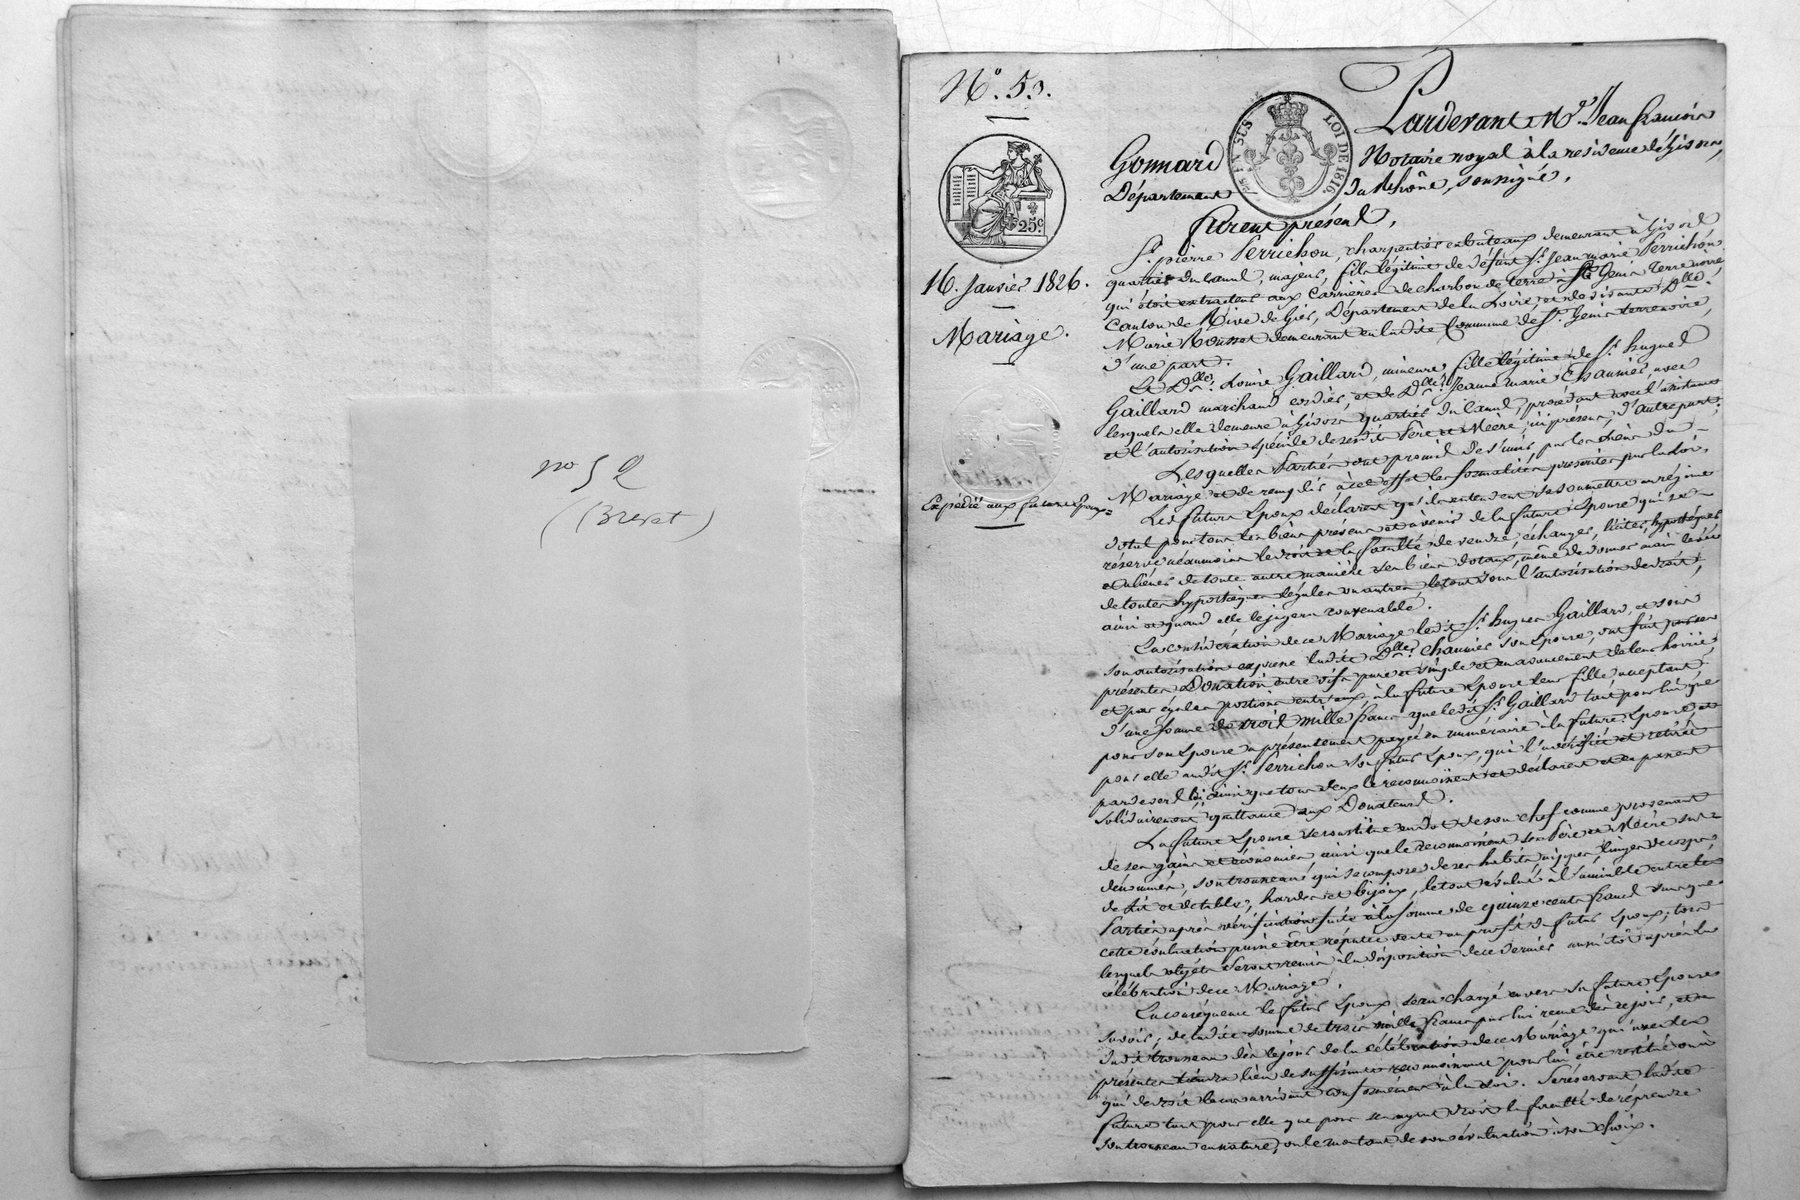 no 52
(Brevet)
N.° 53.
25.c
EN SUS
LOI DE 1816.
16. Janvier 1826.
Mariage.
Expédié aux futurs Epoux
Pardevant M.e Jean françois
Gonnard Notaire royal à la résidence de Givors,
Département du Rhône, soussigné,
furent présens,
S.r pierre Perrichon, charpentier en bateaux demeurant à Givors
quartier du Canal, majeur, fils légitime de défunt S.r Jean marie Perrichon
qui étoit extracteur aux Carrières de charbon de terre à S.t Genis Terre noire
Canton de Rive de Gier, Département de la Loire, et de vivante D.lle
Marie Rousset demeurant en ladite Commune de S.t Genis terre noire,
d'une part.
Et D.lle Louise Gaillard, mineure, fille légitime de S.r hugues
Gaillard marchand cordier, et de D.lle Jeanne marie Chaumier, avec
lesquels elle demeure à Givors quartier du Canal, procédant avec l'assistance
et l'autorisation spéciale de sesdits Père et Mère, ici présens, d'autre part;
Lesquelles Parties ont promis de s'unir par les liens du
Mariage et de remplir à cet effet les formalités prescrites par la loi.
Les futurs Epoux déclarent qu'ils entendent se soumettre au régime
dotal pour tous les biens présens et à venir de la future Epouse qui se
réserve néanmoins le droit et la faculté de vendre, échanger, liciter, hypothéquer
et aliéner de toute autre manière ses biens dotaux, même de donner main levée
de toutes hypothèques légales ou autres, le tout sous l'autorisation de droit,
ainsi et quand elle le jugera convenable.
En considération de ce Mariage ledit S.r hugues Gaillard, et sous
son autorisation expresse ladite D.lle Chaumier son Epouse, ont fait par ces
présentes Donation entre vifs pure et simple et en avancement de leur hoirie
et par égales portions entr'eux, à la future Epouse leur fille acceptant,
d'une somme de trois mille francs que ledit S.r Gaillard tant pour lui que
pour son Epouse a présentement payée en numéraire à la future Epouse et
pour elle audit S.r Perrichon son futur Epoux, qui l'a vérifiée et retirée
pardevers lui, ainsi que tous deux le reconnoissent et déclarent et en passent
solidairement quittance aux Donateurs.
La future Epouse se constitue en dot de son chef comme provenant
de ses gains et économies, ainsi que le reconnoissent ses Père et Mère sus-
dénommés, son trousseau, qui se compose de ses habits, nippes, linges de corps,
de lit et de table, hardes et bijoux, le tout évalué à l'amiable entre les
Parties après vérification faite à la somme de quinze cents francs sans que
cette évaluation puisse être réputée vente au profit du futur Epoux; tous
lesquels objets seront remis à la disposition de ce dernier aussitôt après la
célébration de ce Mariage.
En conséquence le futur Epoux sera chargé envers sa future Epouse
savoir, de ladite somme de trois mille francs par lui reçue dès ce jour, et
dudit trousseau dès le jour de la célébration de ce Mariage qui avec les
présentes tiendra lieu de suffisante reconnoissance pour lui être restitué ou à
qui de droit le cas arrivant conformément à la loi. Se réservant ladite
future tant pour elle que pour ses ayant droit la faculté de reprendre
son trousseau en nature, ou le montant de son évaluation à son choix.